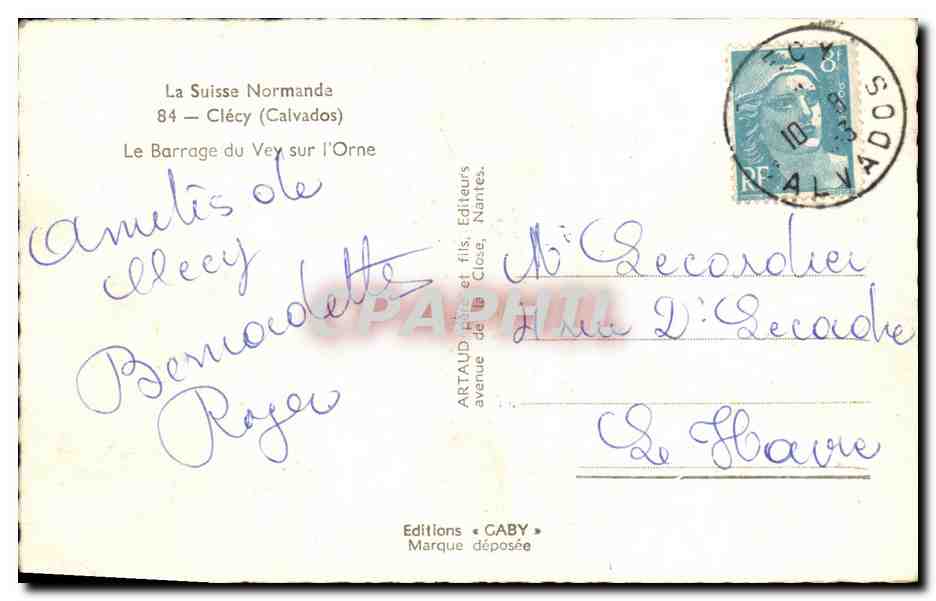 La Suisse Normande
84 — Clécy (Calvados)
Le Barrage du Vey sur l'Orne
Amitiés de
Clécy
Bernadette
Roger
ARTAUD père et fils, Editeurs
avenue de la Close, Nantes.
CPAPHIL
8F
RF
10
8
3
CALVADOS
Mr Lecordier
rue Dr Lecadre
Le Havre
Editions « GABY »
Marque déposée